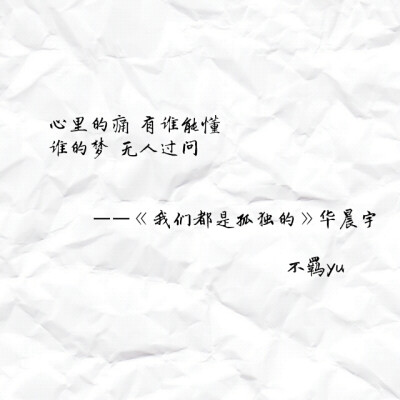 心里的痛 有谁能懂
谁的梦 无人过问
——《我们都是孤独的》华晨宇
不羁yu